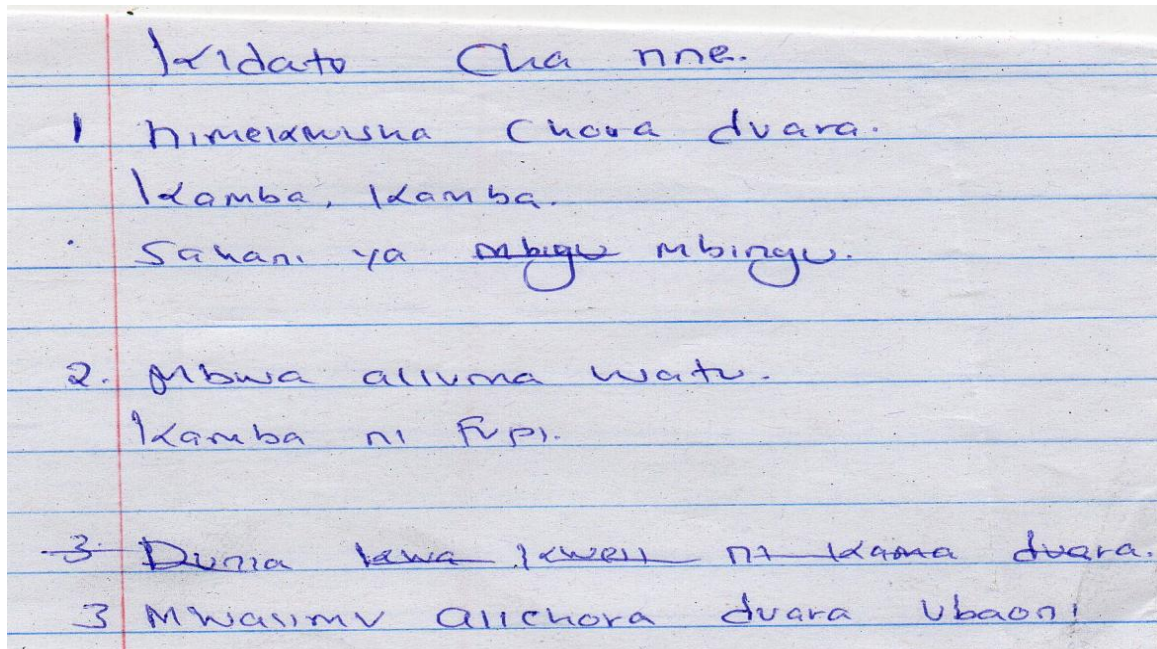 Kidato Cha nne.
1 Nimekamisha Chora duara.
Kamba, Kamba.
Sahani ya mbigu mbingu.
2. Mbwa aliuma watu.
Kamba ni Fupi.
3. Dunia kwa kweli ni kama duara.
3 Mwalimu alichora duara ubaoni